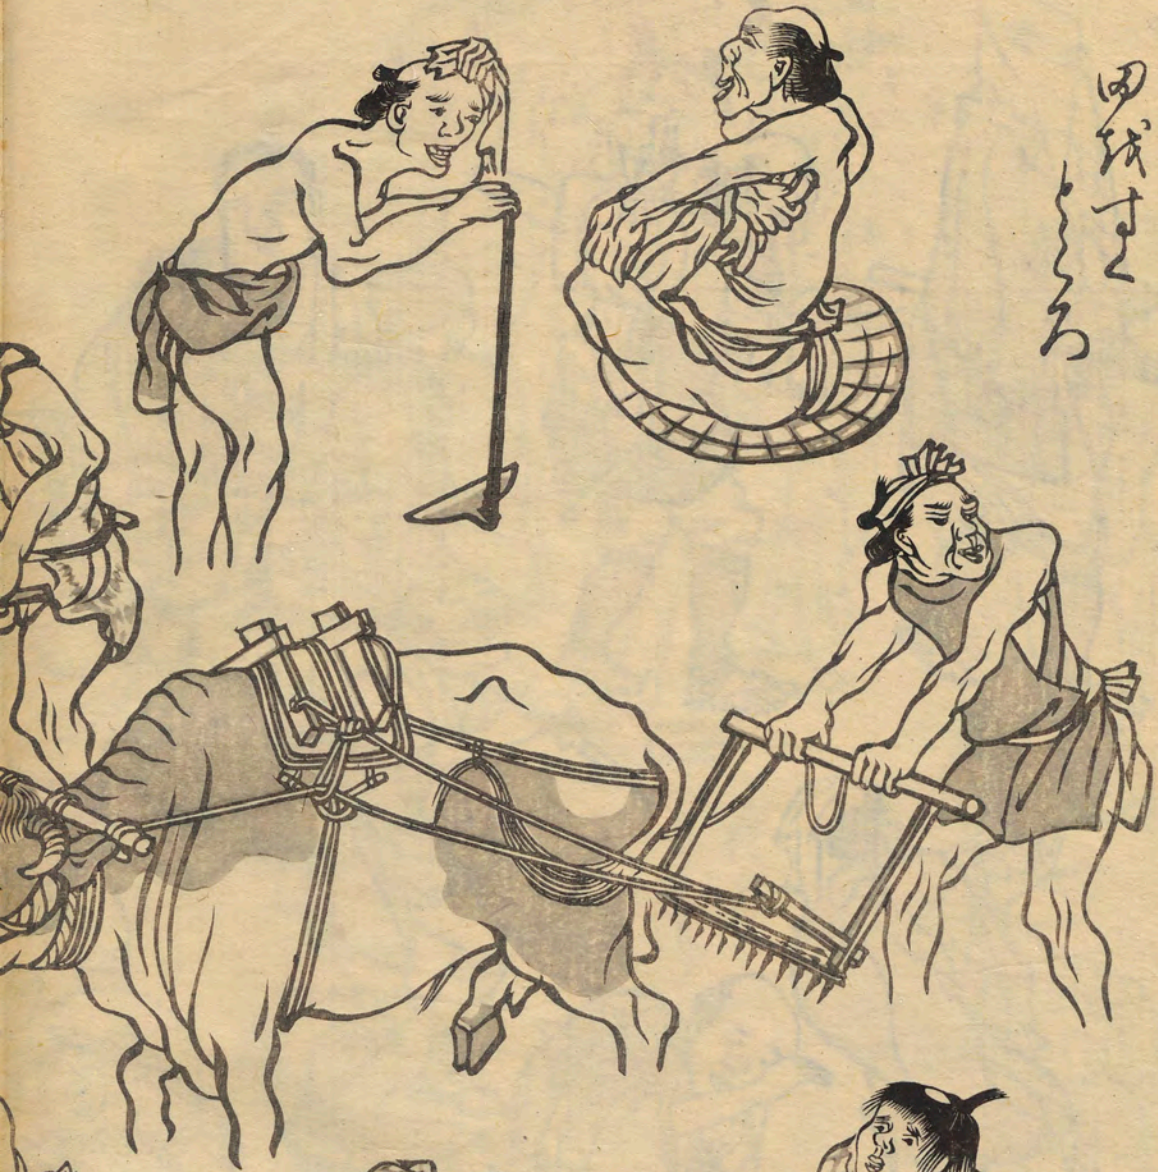 田をすく
ところ